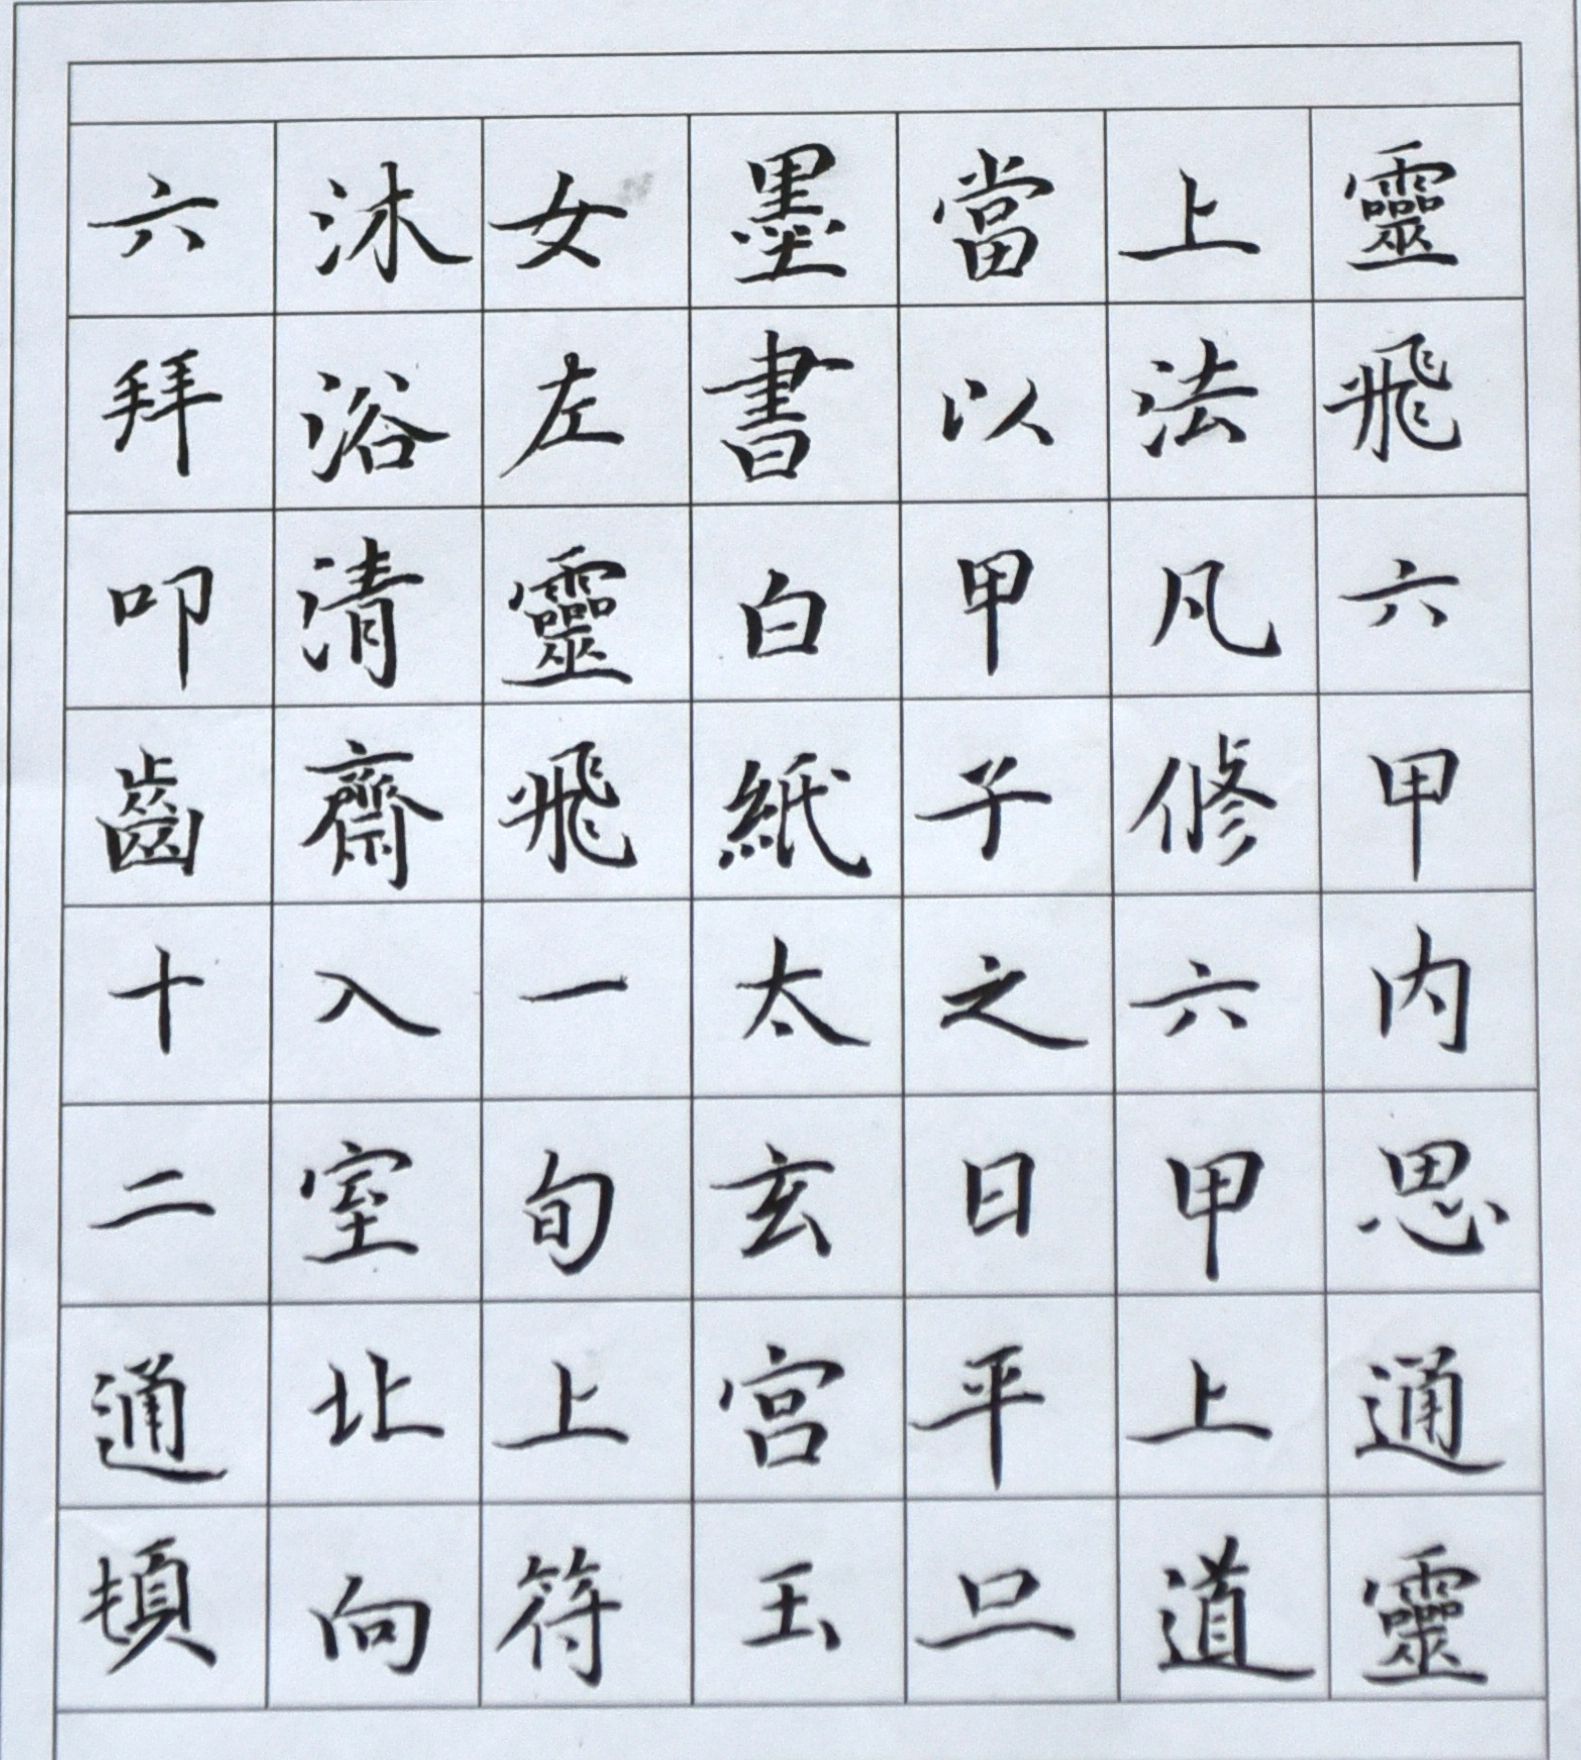 靈飛六甲內思通靈
上法凡修六甲上道
當以甲子之日平旦
墨書白紙太玄宮玉
女左靈飛一旬上符
沐浴清齋入室北向
六拜叩齒十二通頓